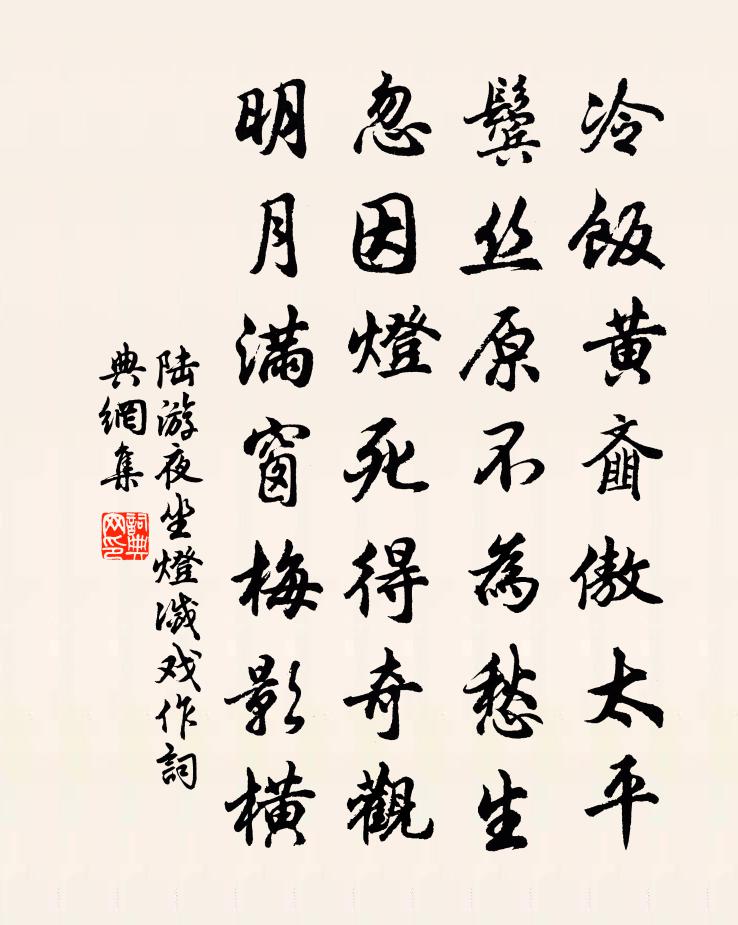 冷飯黃齏傲太平
鬢丝原不為愁生
忽因燈死得奇觀
明月滿窗梅影橫
陆游夜坐燈滅戏作詞
典網集
詞典
网印